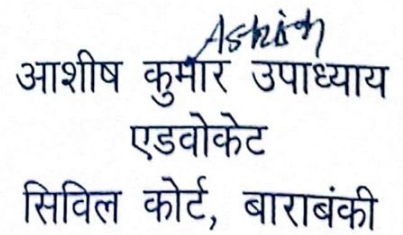 Ashish
आशीष कुमार उपाध्याय
एडवोकेट
सिविल कोर्ट, बाराबंकी